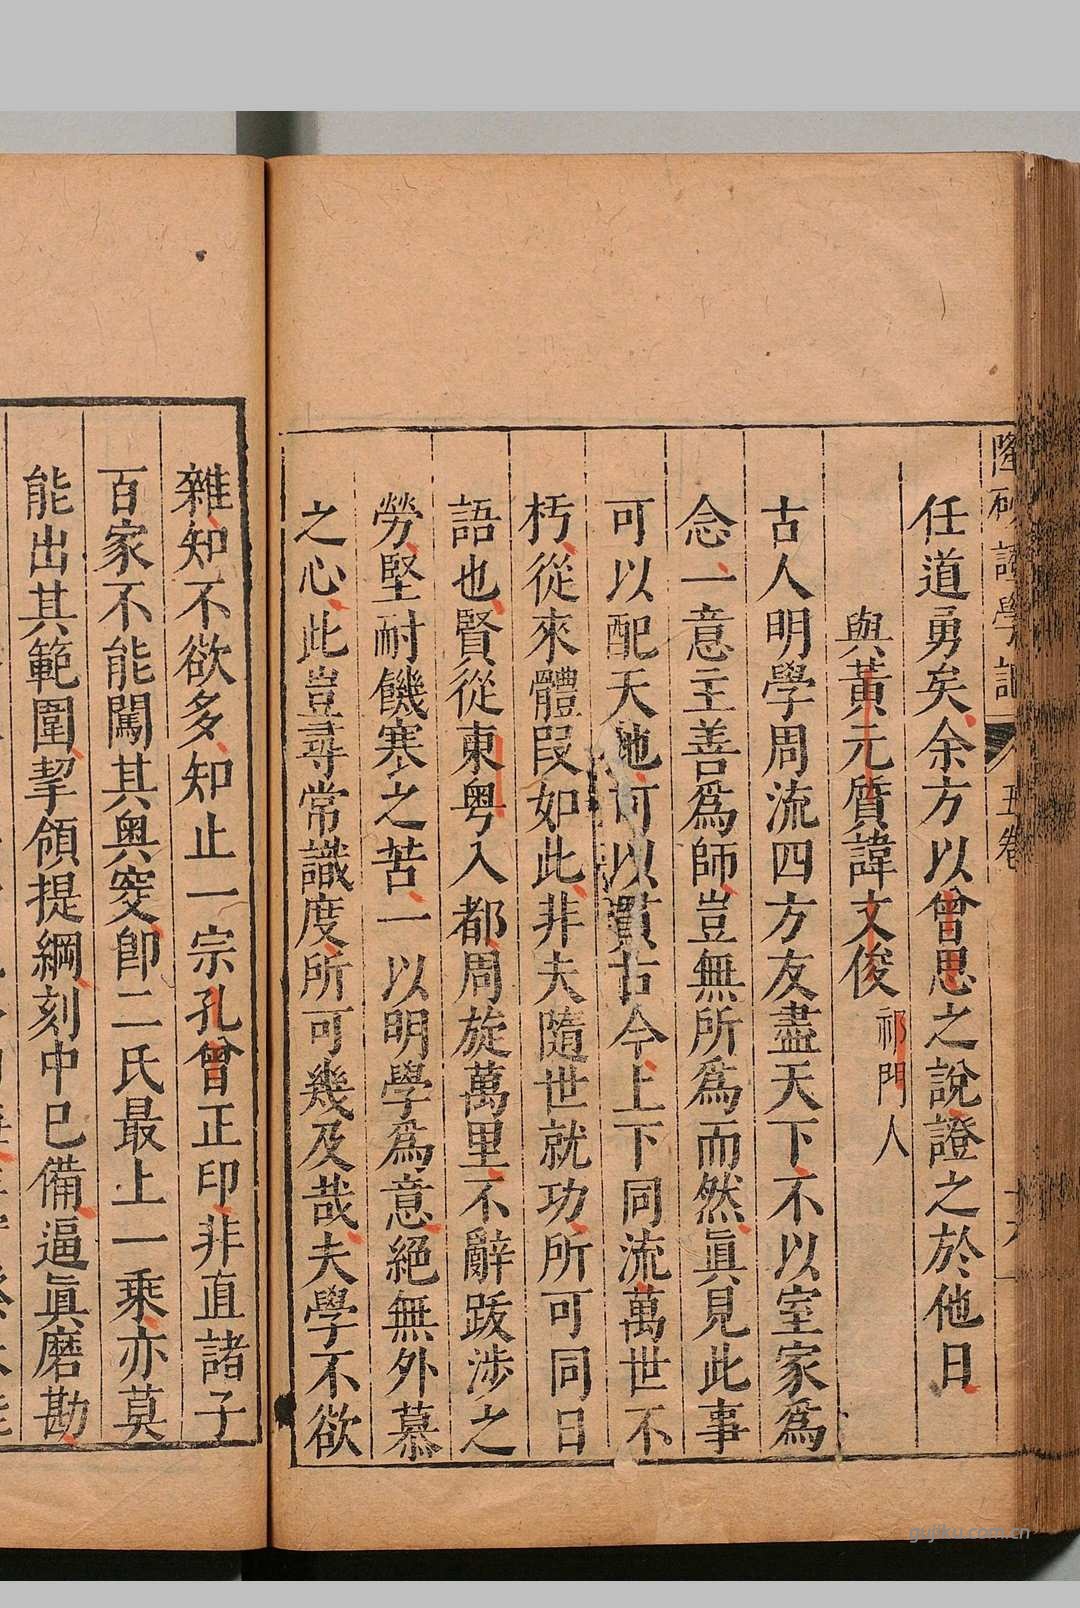 證學記
五卷
任道勇矣余方以曾思之說證之於他日
與黃元質諱文俊祁門人
古人明學周流四方友盡天下不以室家為
念一意主善爲師豈無所爲而然眞見此事
可以配天地可以貫古今上下同流萬世不
朽從來體叚如此非夫隨世就功所可同日
語也賢從東粵入都周旋萬里不辭跋涉之
勞堅耐饑寒之苦一以明學爲意絕無外慕
之心此豈尋常識度所可幾及哉夫學不欲
雜知不欲多知止一宗孔曾正印非直諸子
百家不能闖其奧窔卽二氏最上一乘亦莫
能出其範圍挈領提綱刻中已備逼眞磨勘
gujiku.com.cn